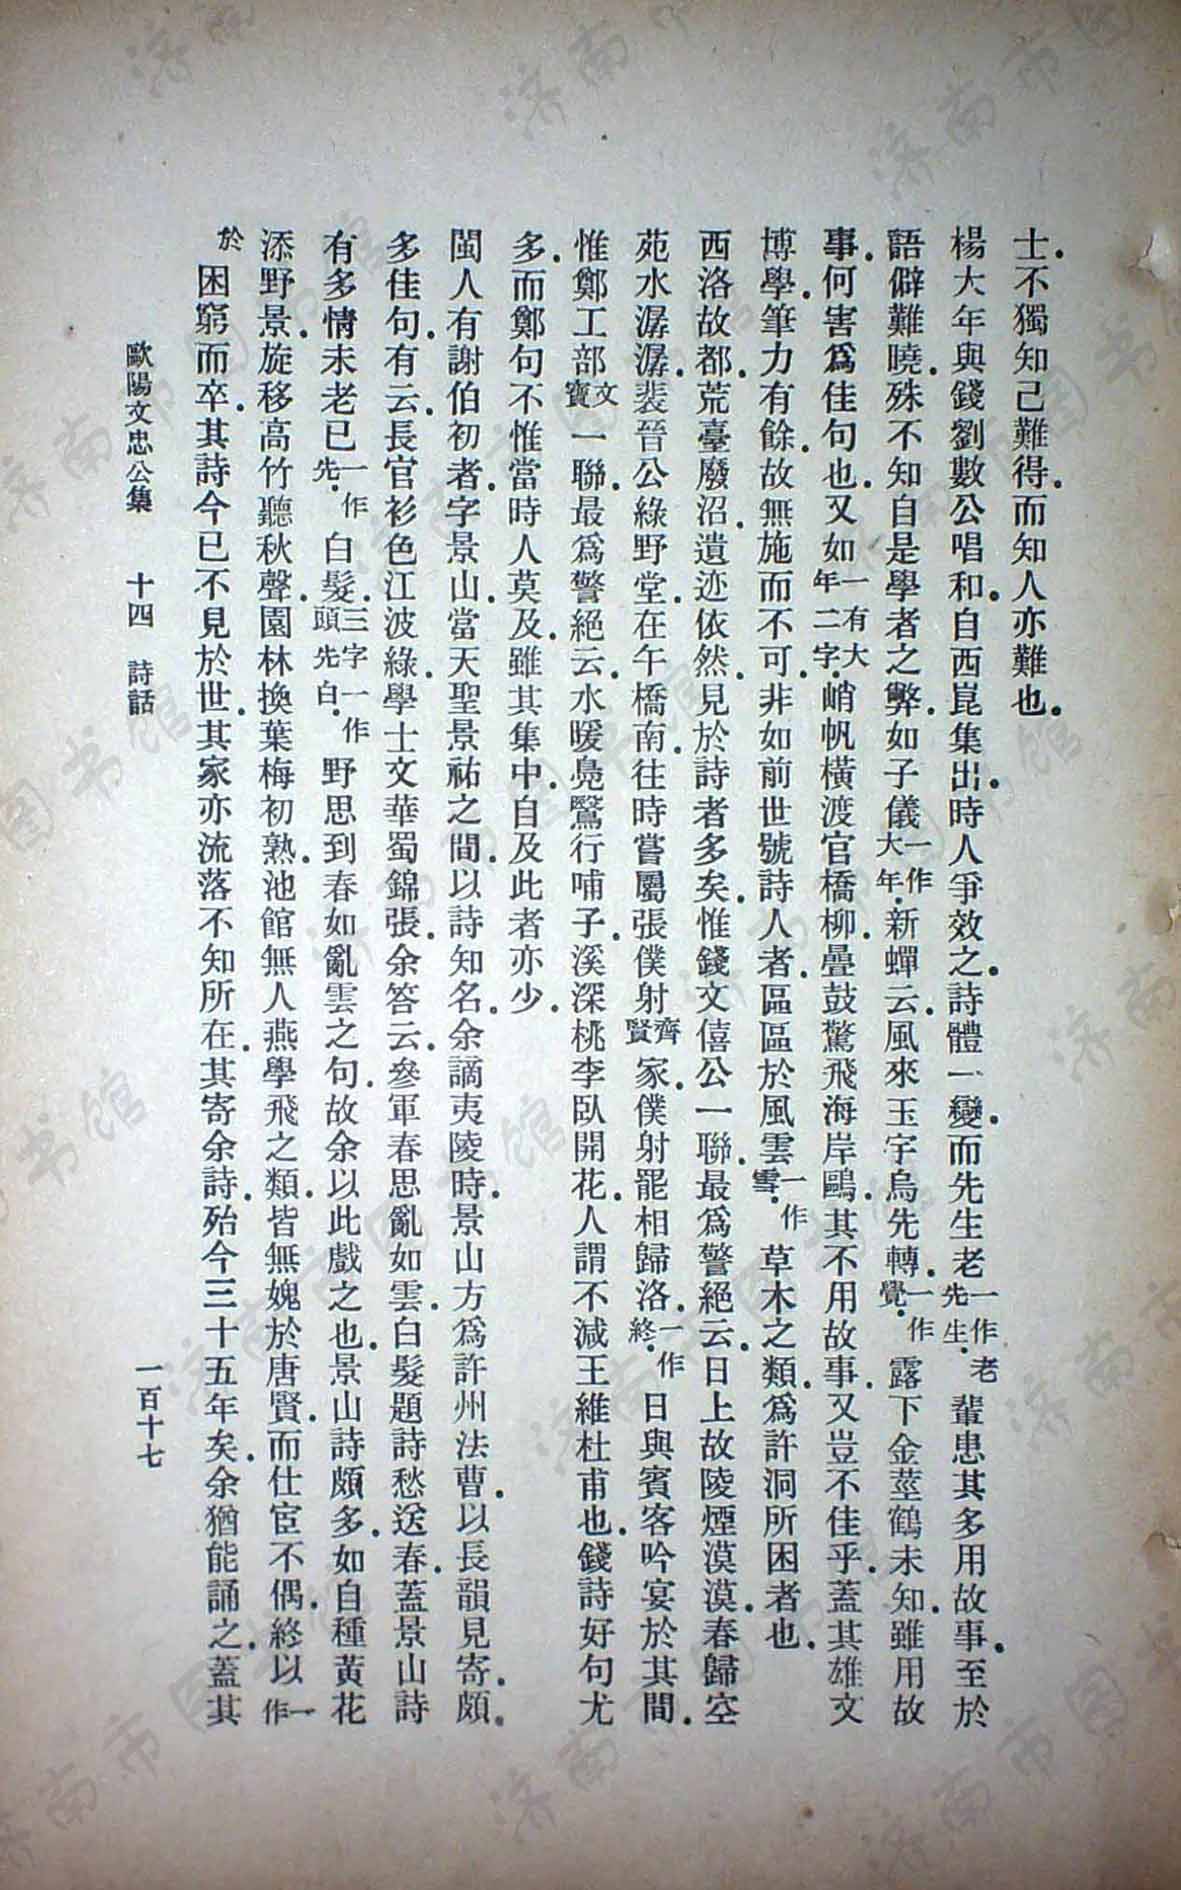 士不獨知己難得.而知人亦難也.
楊大年與錢劉數公唱和.自西崑集出.時人爭效之.詩體一變.而先生老一作老先生.輩患其多用故事.至於
語僻難曉.殊不知自是學者之弊.如子儀一作大年.新蟬云.風來玉宇烏先轉.一作覺.露下金莖鶴未知.雖用故
事.何害爲佳句也.又如一有大年二字.峭帆橫渡官橋柳.疊鼓驚飛海岸鷗.其不用故事.又豈不佳乎.蓋其雄文
博學.筆力有餘.故無施而不可.非如前世號詩人者.區區於風雲一作雪.草木之類.爲許洞所困者也.
西洛故都.荒臺廢沼.遺迹依然.見於詩者多矣.惟錢文僖公一聯.最爲警絕云.日上故陵煙漠漠.春歸空
苑水潺潺.裴晉公綠野堂.在午橋南.往時嘗屬張僕射齊賢家.僕射罷相歸洛.一作終.日與賓客吟宴於其間.
惟鄭工部文寶一聯.最爲警絕云.水暖鳧鷖行哺子.溪深桃李臥開花.人謂不減王維杜甫也.錢詩好句尤
多.而鄭句不惟當時人莫及.雖其集中.自及此者亦少.
閩人有謝伯初者.字景山.當天聖景祐之間.以詩知名.余謫夷陵時.景山方爲許州法曹.以長韻見寄.頗
多佳句.有云.長官衫色江波綠.學士文華蜀錦張.余答云.參軍春思亂如雲.白髮題詩愁送春.蓋景山詩
有多情未老已一作先.白髮.三字一作頭先白.野思到春如亂雲之句.故余以此戲之也.景山詩頗多.如自種黃花
添野景.旋移高竹聽秋聲.園林換葉梅初熟.池館無人燕學飛之類.皆無媿於唐賢.而仕宦不偶.終以一作
於困窮而卒.其詩今已不見於世.其家亦流落不知所在.其寄余詩.殆今三十五年矣.余猶能誦之.蓋其
歐陽文忠公集 十四 詩話 一百十七
济南市图书馆